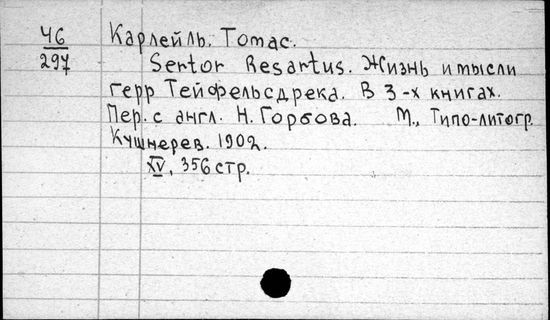 46
297
Карлейль. Томас.
Sertor Resartus. Жизнь и мысли
герр Тейфельсдрека. В 3-х книгах.
Пер. с англ. Н. Горбова. М., Типо-литогр.
Кушнерев. 1902.
XV, 356 стр.